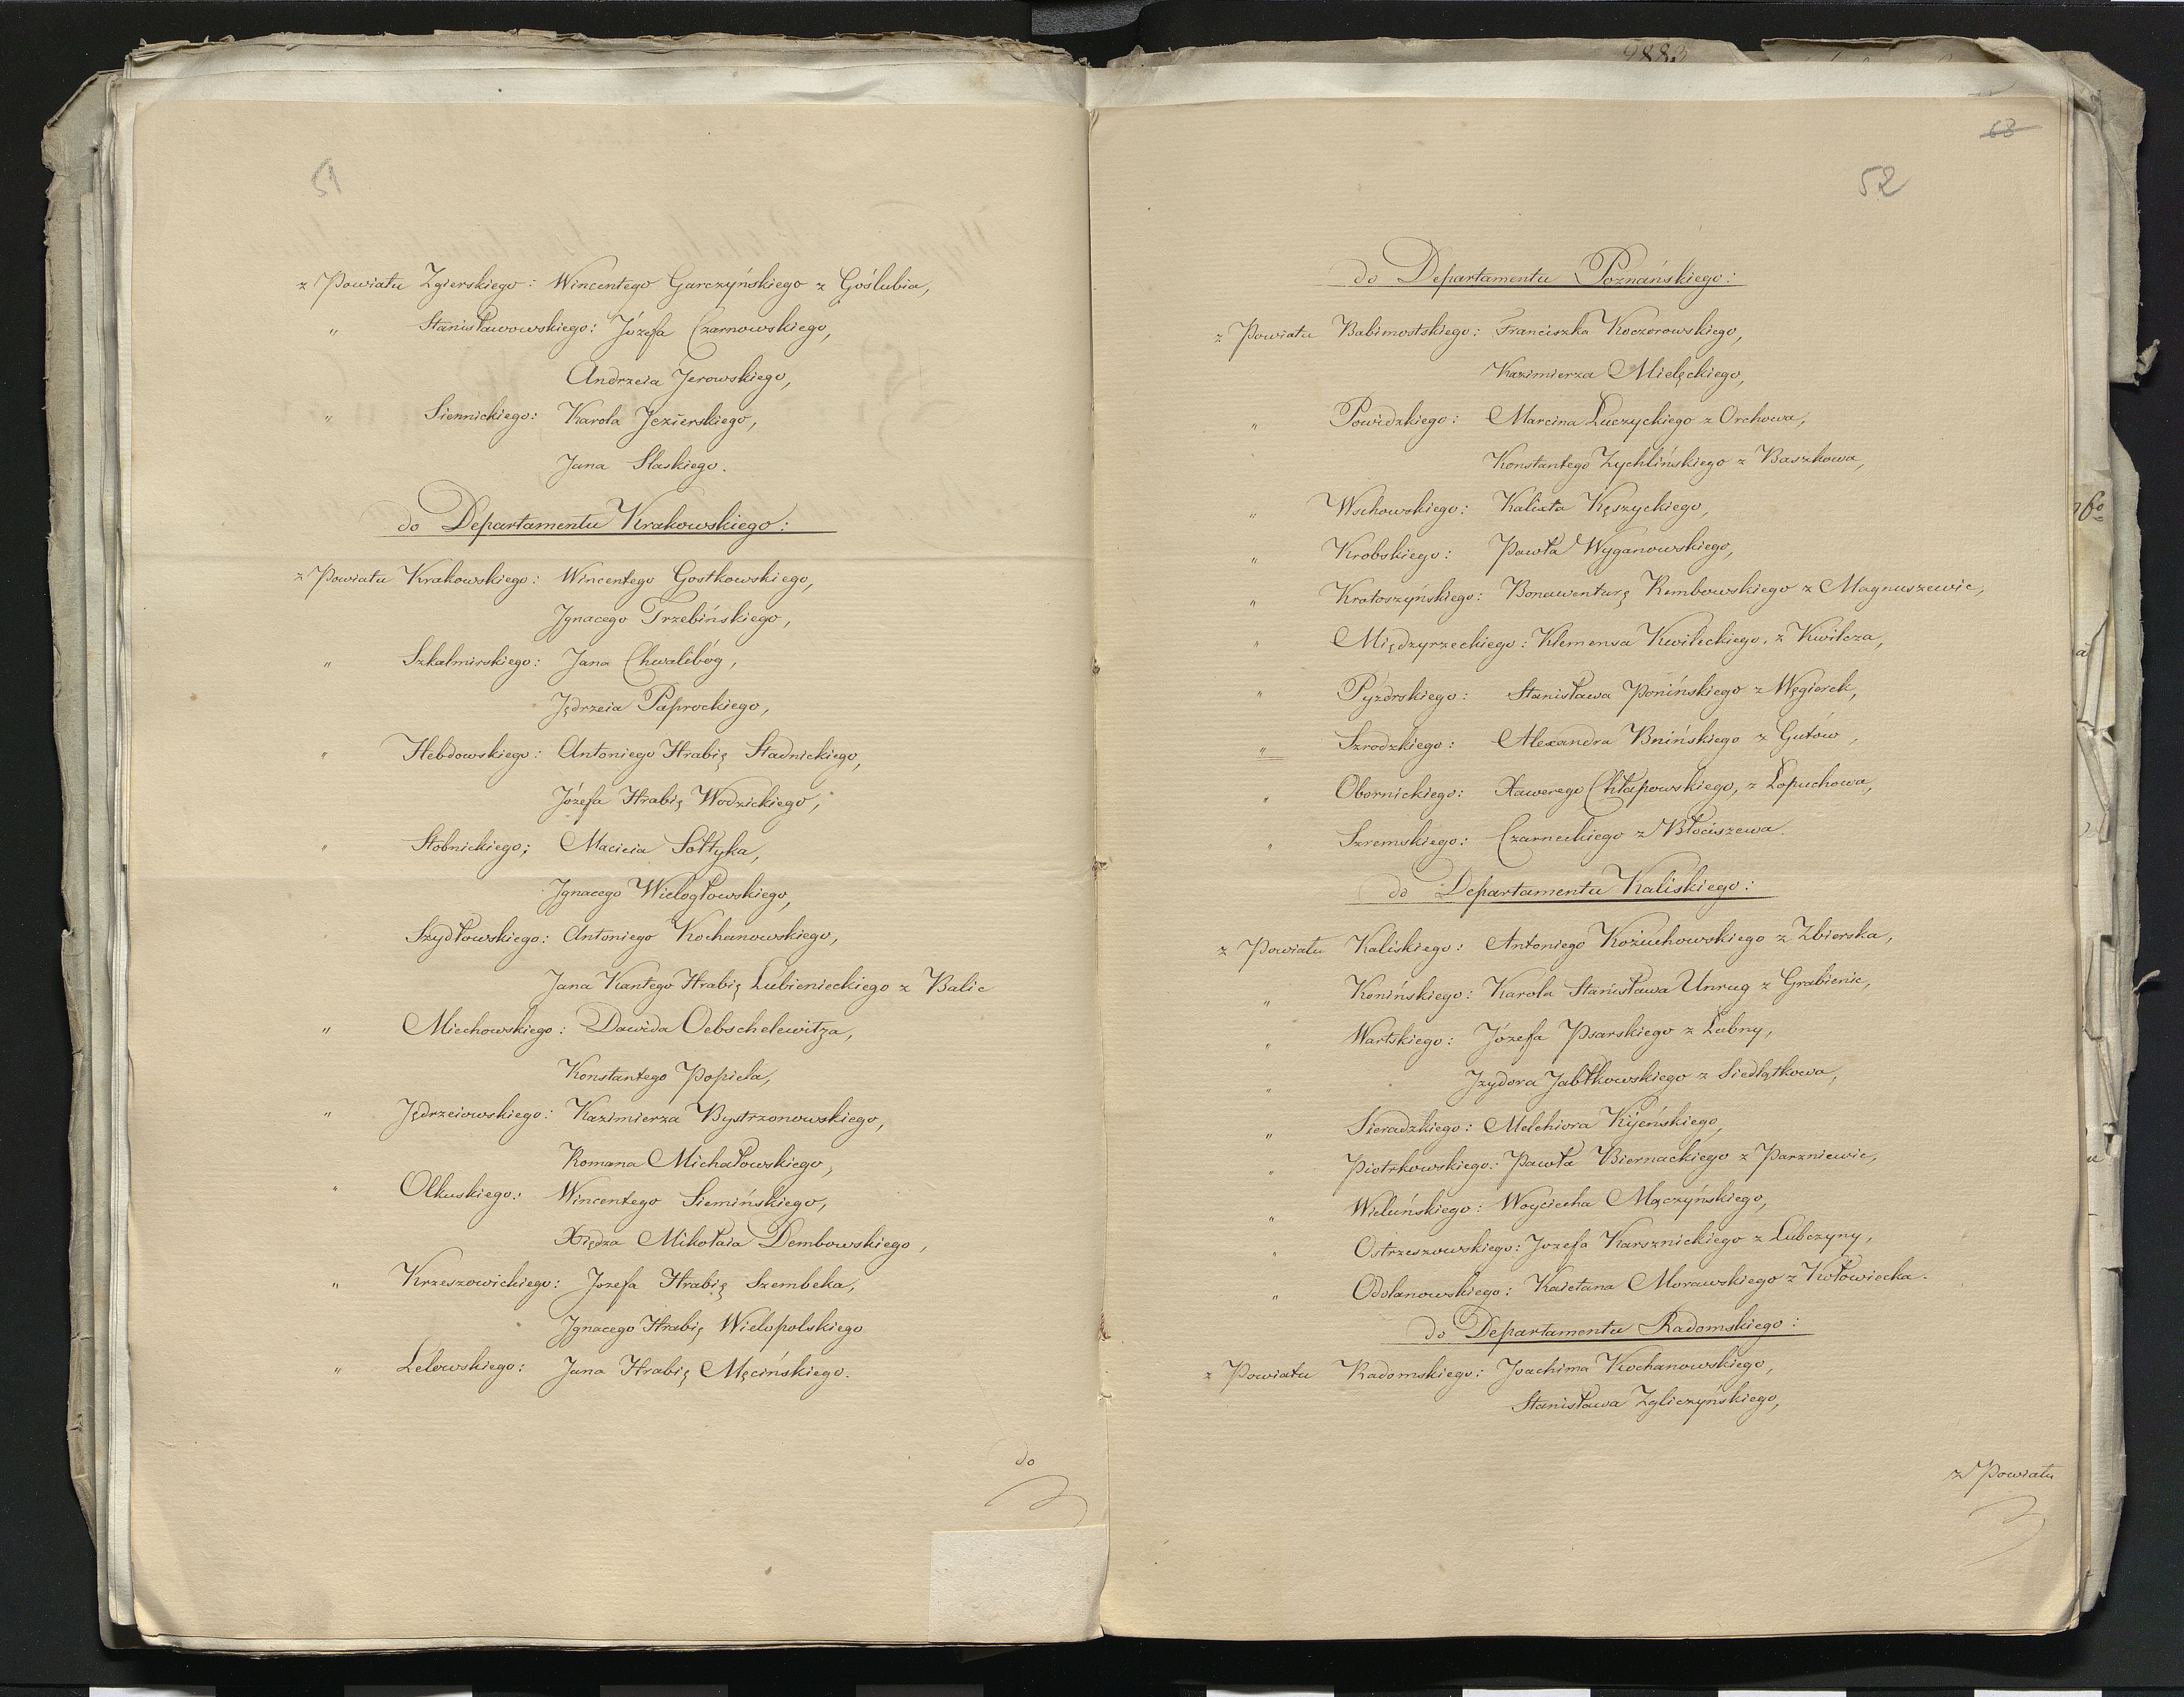 51
z Powiatu Zgierskiego: Wincentego Garczyńskiego z Goślubia,
" Stanisławowskiego: Józefa Czarnowskiego,
Andrzeia Jerowskiego,
" Siennickiego: Karola Jezierskiego,
Jana Slaskiego.
do Departamentu Krakowskiego:
z Powiatu Krakowskiego: Wincentego Gostkowskiego,
Jgnacego Trzebińskiego,
" Szkalmirskiego: Jana Chwalibóg,
Jędrzeia Paprockiego,
" Hebdowskiego: Antoniego Hrabię Stadnickiego,
Józefa Hrabię Wodzickiego,
" Stobnickiego; Macieia Sołtyka,
Jgnacego Wielogłowskiego,
Szydłowskiego: Antoniego Kochanowskiego,
Jana Kantego Hrabię Łubienieckiego z Balic
" Miechowskiego: Dawida Oebschelewitza,
Konstantego Popiela,
" Jędrzeiowskiego: Kazimierza Bystrzonowskiego,
Romana Michałowskiego,
" Olkuskiego: Wincentego Siemińskiego,
Xiędza Mikołaia Dembowskiego,
" Krzeszowickiego: Jozefa Hrabię Szembeka,
Jgnacego Hrabię Wielopolskiego
" Lelowskiego: Jana Hrabię Męcińskiego.
do
68
52
do Departamentu Poznańskiego:
z Powiatu Babimostskiego: Franciszka Koczorowskiego,
Kazimierza Mielęckiego,
" Powidzkiego: Marcina Łuczyckiego z Orchowa,
Konstantego Zychlińskiego z Baszkowa,
" Wschowskiego: Kalixta Kęszyckiego,
" Krobskiego: Pawła Wyganowskiego,
" Krotoszyńskiego: Bonawenturę Rembowskiego z Magnuszewic,
" Międzyrzeckiego: Klemensa Kwileckiego, z Kwilcza,
" Pyzdrskiego: Stanisława Ponińskiego z Węgierek,
" Szrodzkiego: Alexandra Bnińskiego z Gułów,
" Obornickiego: Xawerego Chłapowskiego, z Łopuchowa,
" Szremskiego: Czarneckiego z Błociszewa.
do Departamentu Kaliskiego:
z Powiatu Kaliskiego: Antoniego Kożuchowskiego z Zbierska,
" Konińskiego: Karola Stanisława Unrug z Grabienic,
" Wartskiego: Józefa Psarskiego z Łubny,
" Jzydora Jabłkowskiego z Siedlątkowa,
" Sieradzkiego: Melchiora Kijeńskiego,
" Piotrkowskiego: Pawła Biernackiego z Parzniewic,
" Wieluńskiego: Woyciecha Męczyńskiego,
" Ostrzeszowskiego: Jozefa Karsznickiego z Lubczyny,
" Odolanowskiego: Kaietana Morawskiego z Kotowiecka.
do Departamentu Radomskiego:
z Powiatu Radomskiego: Joachima Kochanowskiego,
Stanisława Zgliczyńskiego,
z Powiatu